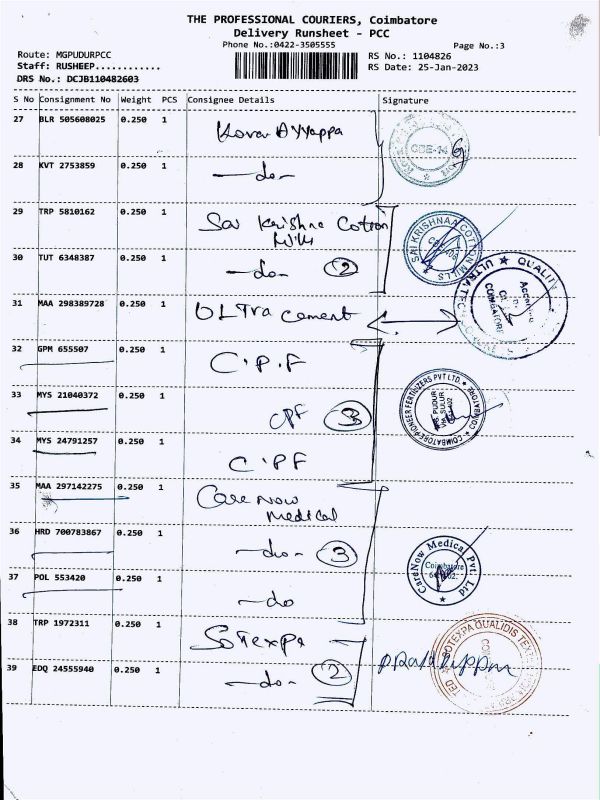 THE PROFESSIONAL COURIERS, Coimbatore
Delivery Runsheet - PCC
Phone No.:0422-3505555
Page No.:3
Route: MGPUDURPCC
Staff: RUSHEEP............
DRS No.: DCJB110482603
RS No.: 1104826
RS Date: 25-Jan-2023
S No Consignment No Weight PCS Consignee Details Signature
27 BLR 505608025 0.250 1 Kovai Ayyappa
28 KVT 2753859 0.250 1 -do-
CBE-14
29 TRP 5810162 0.250 1 Sai Krishna Cotton
Mills
SAI KRISHNAA COTTON MILLS
30 TUT 6348387 0.250 1 -do- 2
31 MAA 298389728 0.250 1 ULTra cement
ULTRATEC QUALITY
COIMBATORE
32 GPM 655507 0.250 1 C.P.F
33 MYS 21040372 0.250 1 CPF 3
PIONEER FERTILIZERS PVT LTD. COIMBATORE
PUDUR
VIA SULUR
34 MYS 24791257 0.250 1 C.PF
35 MAA 297142275 0.250 1 Care Now
Medical
36 HRD 700783867 0.250 1 -do- 3
CareNow Medical Pvt. Ltd
Coimbatore
37 POL 553420 0.250 1 -do
38 TRP 1972311 0.250 1 Sotexpa
SOTEXPA QUALIDIS TEX
39 EDQ 24555940 0.250 1 -do- 2